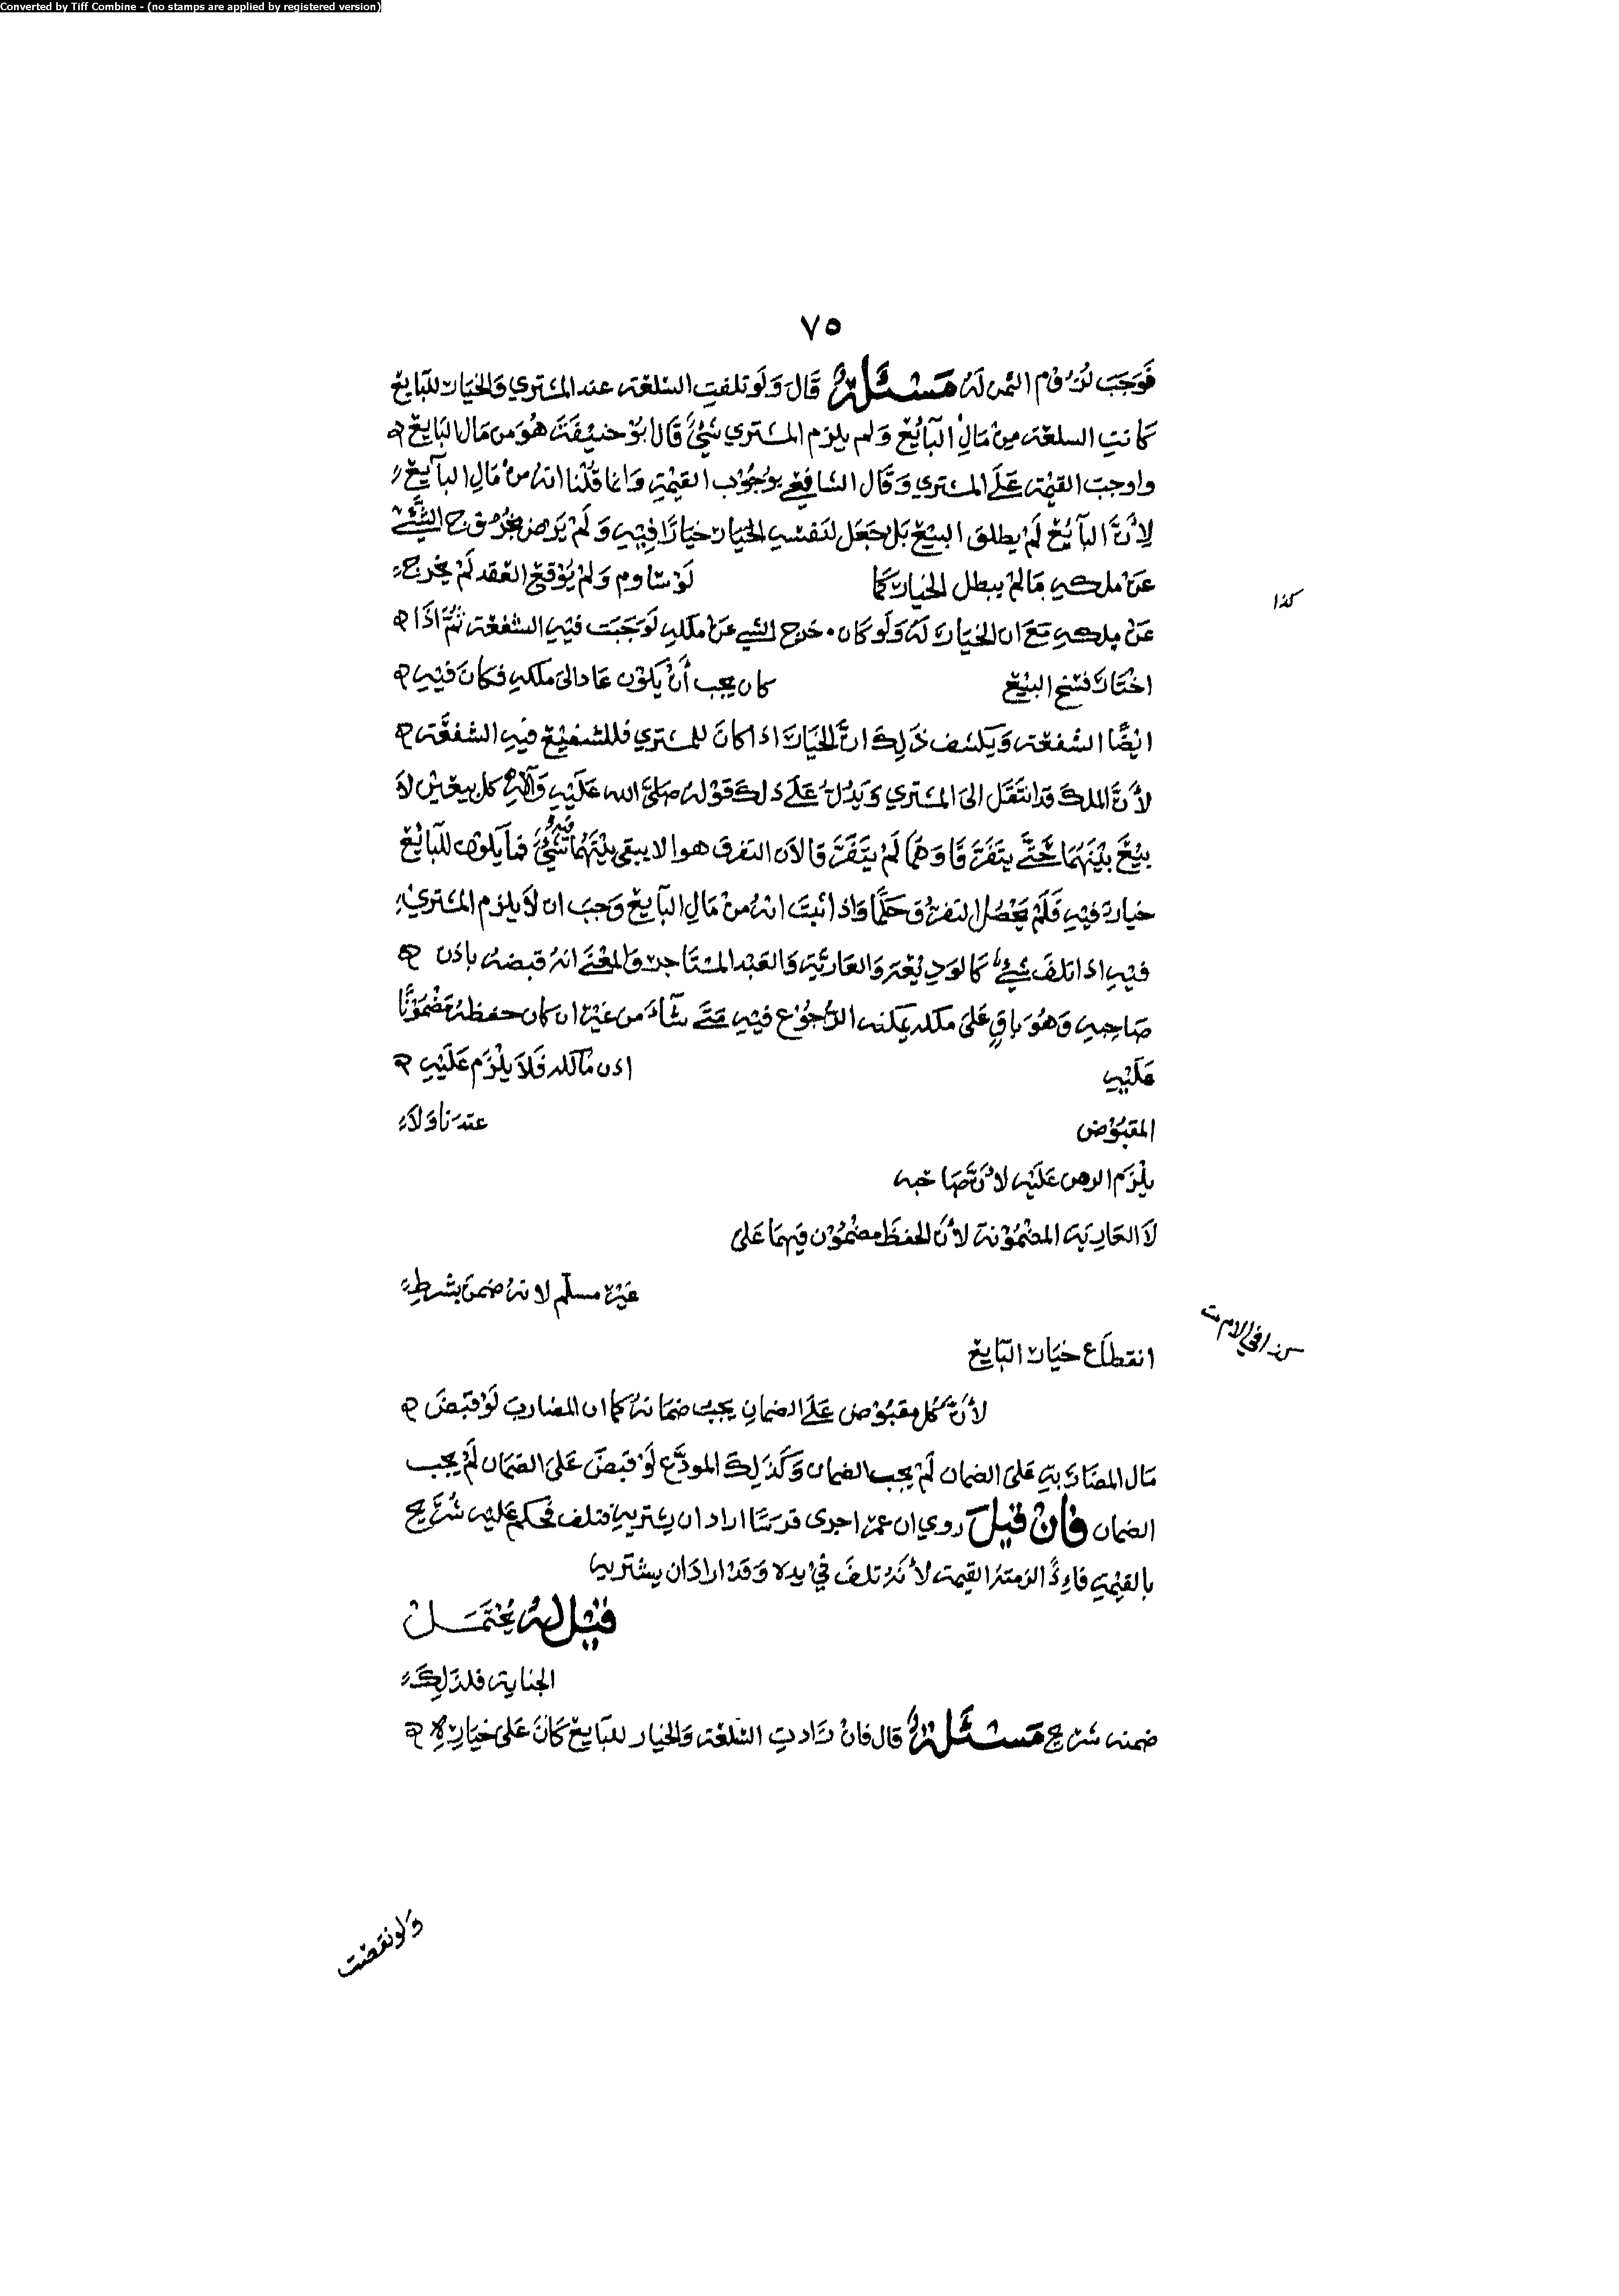 Converted by Tiff Combine - (no stamps are applied by registered version)
٧٥
فَوَجَبَ لزُوم الثمن لَهُ مَسْئَلَةٌ قَالَ وَلَو تلفتِ السّلعة عند المشتري وَالخيَار للبَايع
كَانتِ السلعة مِنْ مَالِ الْبَآئِع وَلم يلزم المشتري شَيْءٌ قَالَ ابُو حَنِيْفَةَ هُوَ من مَال البَايع
واوجبَ القيْمة عَلَى المشتري وَقَال الشافِعِي بوُجُوْب القيْمَةِ وَانما قُلْنا انهُ منْ مَالِ البآيع
لأنَّ البآئِع لَمْ يطلق البيْع بَل جَعَل لنَفسْهِ الخيَار خيَارًا فِيْهِ وَلَمْ يَرض بخرُوج الشَّيْء
عَنْ ملكهِ مَا لَمْ يبطل الخيَار كَمَا لَوْ سَاوم وَلَمْ يُوْقع العَقد لَمْ يخرج
كذا
عَنْ مِلكهِ مَعَ ان الخيَارَ لَهُ وَلَو كَان خَرج الشي عَنْ ملكهِ لَوَجَبَت فيْهِ الشفعَة ثُمَّ اذَا
اخْتَارَ فَسْخ البَيْع كان يجب أَنْ يَكوْن عَاد الى مَلكهِ فكَانَ فيْهِ
ايضًا الشفعة وَيَكشف ذَلِكَ انَّ الخيَارَ اذا كانَ للمشتري فللشفيْع فيْهِ الشفعَة
لأنَّ الملكَ قد انتَقَل الىَ المشتري وَيَدُلُّ عَلَى ذلكَ قَوْلهُ صَلَّى الله عَلَيْهِ وَآلِهِ كل بيعَيْن لاَ
بيْعَ بيْنَهُمَا حَتَّى يتفَرَّقَا وَهُمَا لَمْ يتَفَرَّقا لأن التفرق هو ان لا يبقى بيْنَهُمَا فيه شَيْءٌ فمَا يَكون للبَآئِع
خيار فيْهِ فَلَمْ يَحْصُل التفرّق حَكمًا وَاذا ثبتَ انهُ منْ مَالِ البَآيع وَجبَ ان لاَ يلزم المشتري
فيْهِ اذا تلفَ شَيْءٌ كَالوَدِيْعَة وَالعَاريَّةِ وَالعَبْد المسْتَاجر وَالمعْنَى انهُ قبضهُ باذن
صَاحِبهِ وَهُوَ باقٍ عَلىَ ملكه يمكنه الرُّجُوْع فيْهِ مَتَى شَاءَ من غيْر ان كان حفظهُ مَضْمُوْنًا
عَلَيْهِ اذن مَالكه فَلاَ يلْزَم عَلَيْهِ
المقبُوْض عندَنا وَلاَ
يلْزَم الرهن عَلَيْهِ لأنَّ صَاحبه
لاَ العَاريَة المضْمُوْنة لأنَّ الحفظَ مضْمُوْن فيْهمَا عَلى
غيْر مسلّم لانهُ ضمنَ بشرطِ
انقطَاع خيَار البَآيع
كذا في الام ت
لأنَّ كُل مقبُوْض عَلَى الضمانِ يجبُ ضمَانهُ كما ان المضاربَ لَوْ قَبَضَ
مَال المضَارَبةِ عَلىَ الضمان لَمْ يجب الضمان وَكَذَلِكَ المودَّع لَوْ قبَضَ عَلىَ الضمَان لَمْ يجب
الضمان فَانْ قيْلَ روي ان عمر اجرى فرسًا اراد ان يشتريه فتلف فحكم عليه شُرَيح
بالقيْمةِ فَاِذًا الزمتمُ القيمة لأنهُ تلفَ فيْ يده وَقدْ ارادَ ان يشتريه
قيْل لهُ يُحْتَمَل
الجناية فلذَلِكَ
ضمنه شرَيح مَسْئَلَةٌ قال فَانْ زَادتِ السّلعَة وَالخيار للبَآيع كَانَ عَلىَ خيَارِهِ
وَلو نقصَت